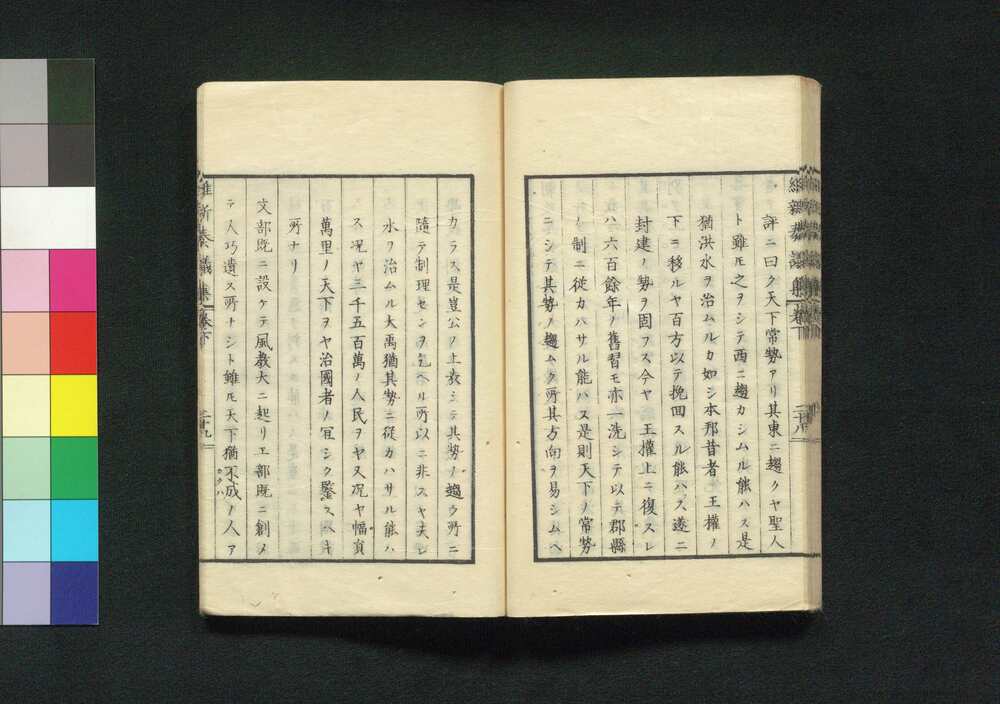 評ニ曰ク天下常勢アリ其東ニ趨クヤ聖人
ト雖モ之ヲシテ西ニ趨カシムル能ハス是
猶洪水ヲ治ムルカ如シ本邦昔者 王權ノ
下ニ移ルヤ百方以テ挽回スル能ハス遂ニ
封建ノ勢ヲ固フス今ヤ 王權上ニ復スレ
ハ六百餘年ノ舊習モ亦一洗シテ以テ郡縣
ノ制ニ從カハサル能ハス是則天下ノ常勢
ニシテ其勢ノ趨ムク所其方向ヲ易シムヘ
カラス是豈公ノ上表シテ其勢ノ趨ウ所ニ
隨テ制理センヲ乞ヘル所以ニ非スヤ夫レ
水ヲ治ムル大禹猶其勢ニ從カハサル能ハ
ス况ヤ三千五百萬ノ人民ヲヤ又况ヤ幅員
萬里ノ天下ヲヤ治國者ノ宜シク鑒スヘキ
所ナリ
文部既ニ設ケテ風教大ニ起リ工部既ニ創メ
テ人巧遺ス所ナシト雖モ天下猶不成ノ人ア
維新奏議集 卷下 二十九